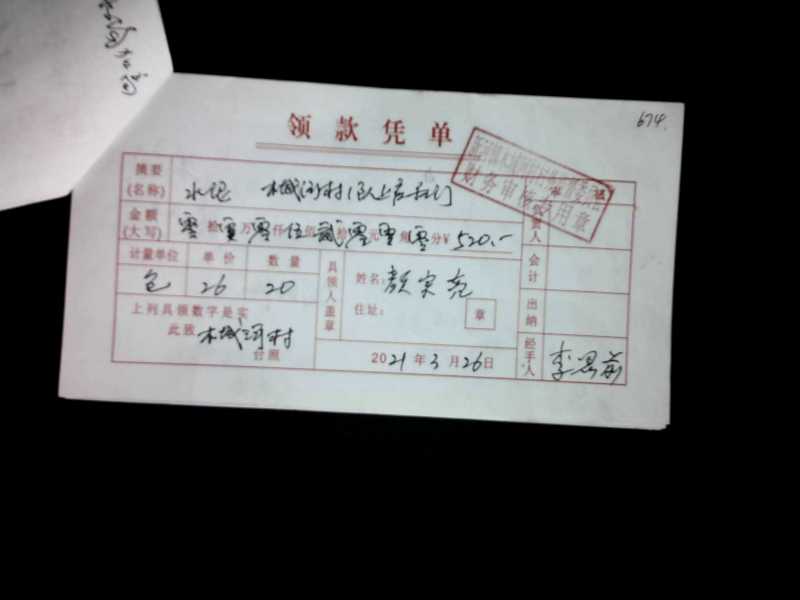 领款凭单
674.
摘要(名称) 水泥 木城河村
金额(大写) 零拾零万零仟伍佰贰拾零元零角零分¥ 520.-
计量单位 单价 数量
包 26 20
具领人盖章 姓名: 颜宗亮
住址: 章
上列具领数字是实
此致 木城河村
台照
2021年3月26日
负责人
会计
出纳
经手人 李思前
财务审核专用章